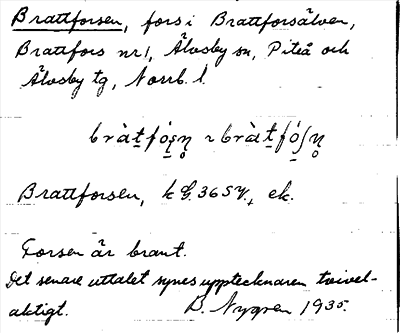 Brattforsen, fors i Brattforsälven,
Brattfors nr 1, Älvsby sn, Piteå och
Älvsby tg, Norrb. l.
bràt̲fó̲ʂn̥ ~ bràt̲fó̲ʃn̥
Brattforsen, k G. 36 SV., ek.
Forsen är brant.
Det senare uttalet synes upptecknaren tvivel-
aktigt. B. Nygren 1935.